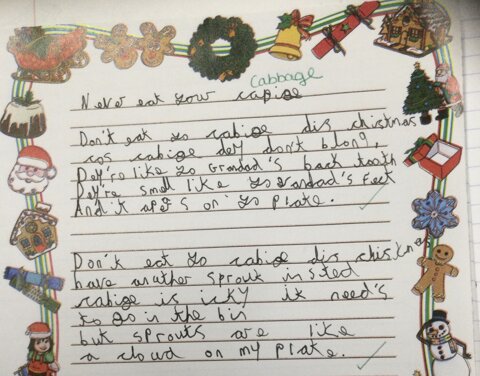 cabbage
Never eat your capige
Don't eat yo cabige dis christmas
cos cabige dey don't blong,
Dey're like yo Grandad's back tooth
Dey're smell like yo grandad's feet
And it on yo plate.
Don't eat yo cabige dis christmas
have another sprout insted
cabige is icky it need's
to go in the bin
but sprouts are like
a cloud on my plate.